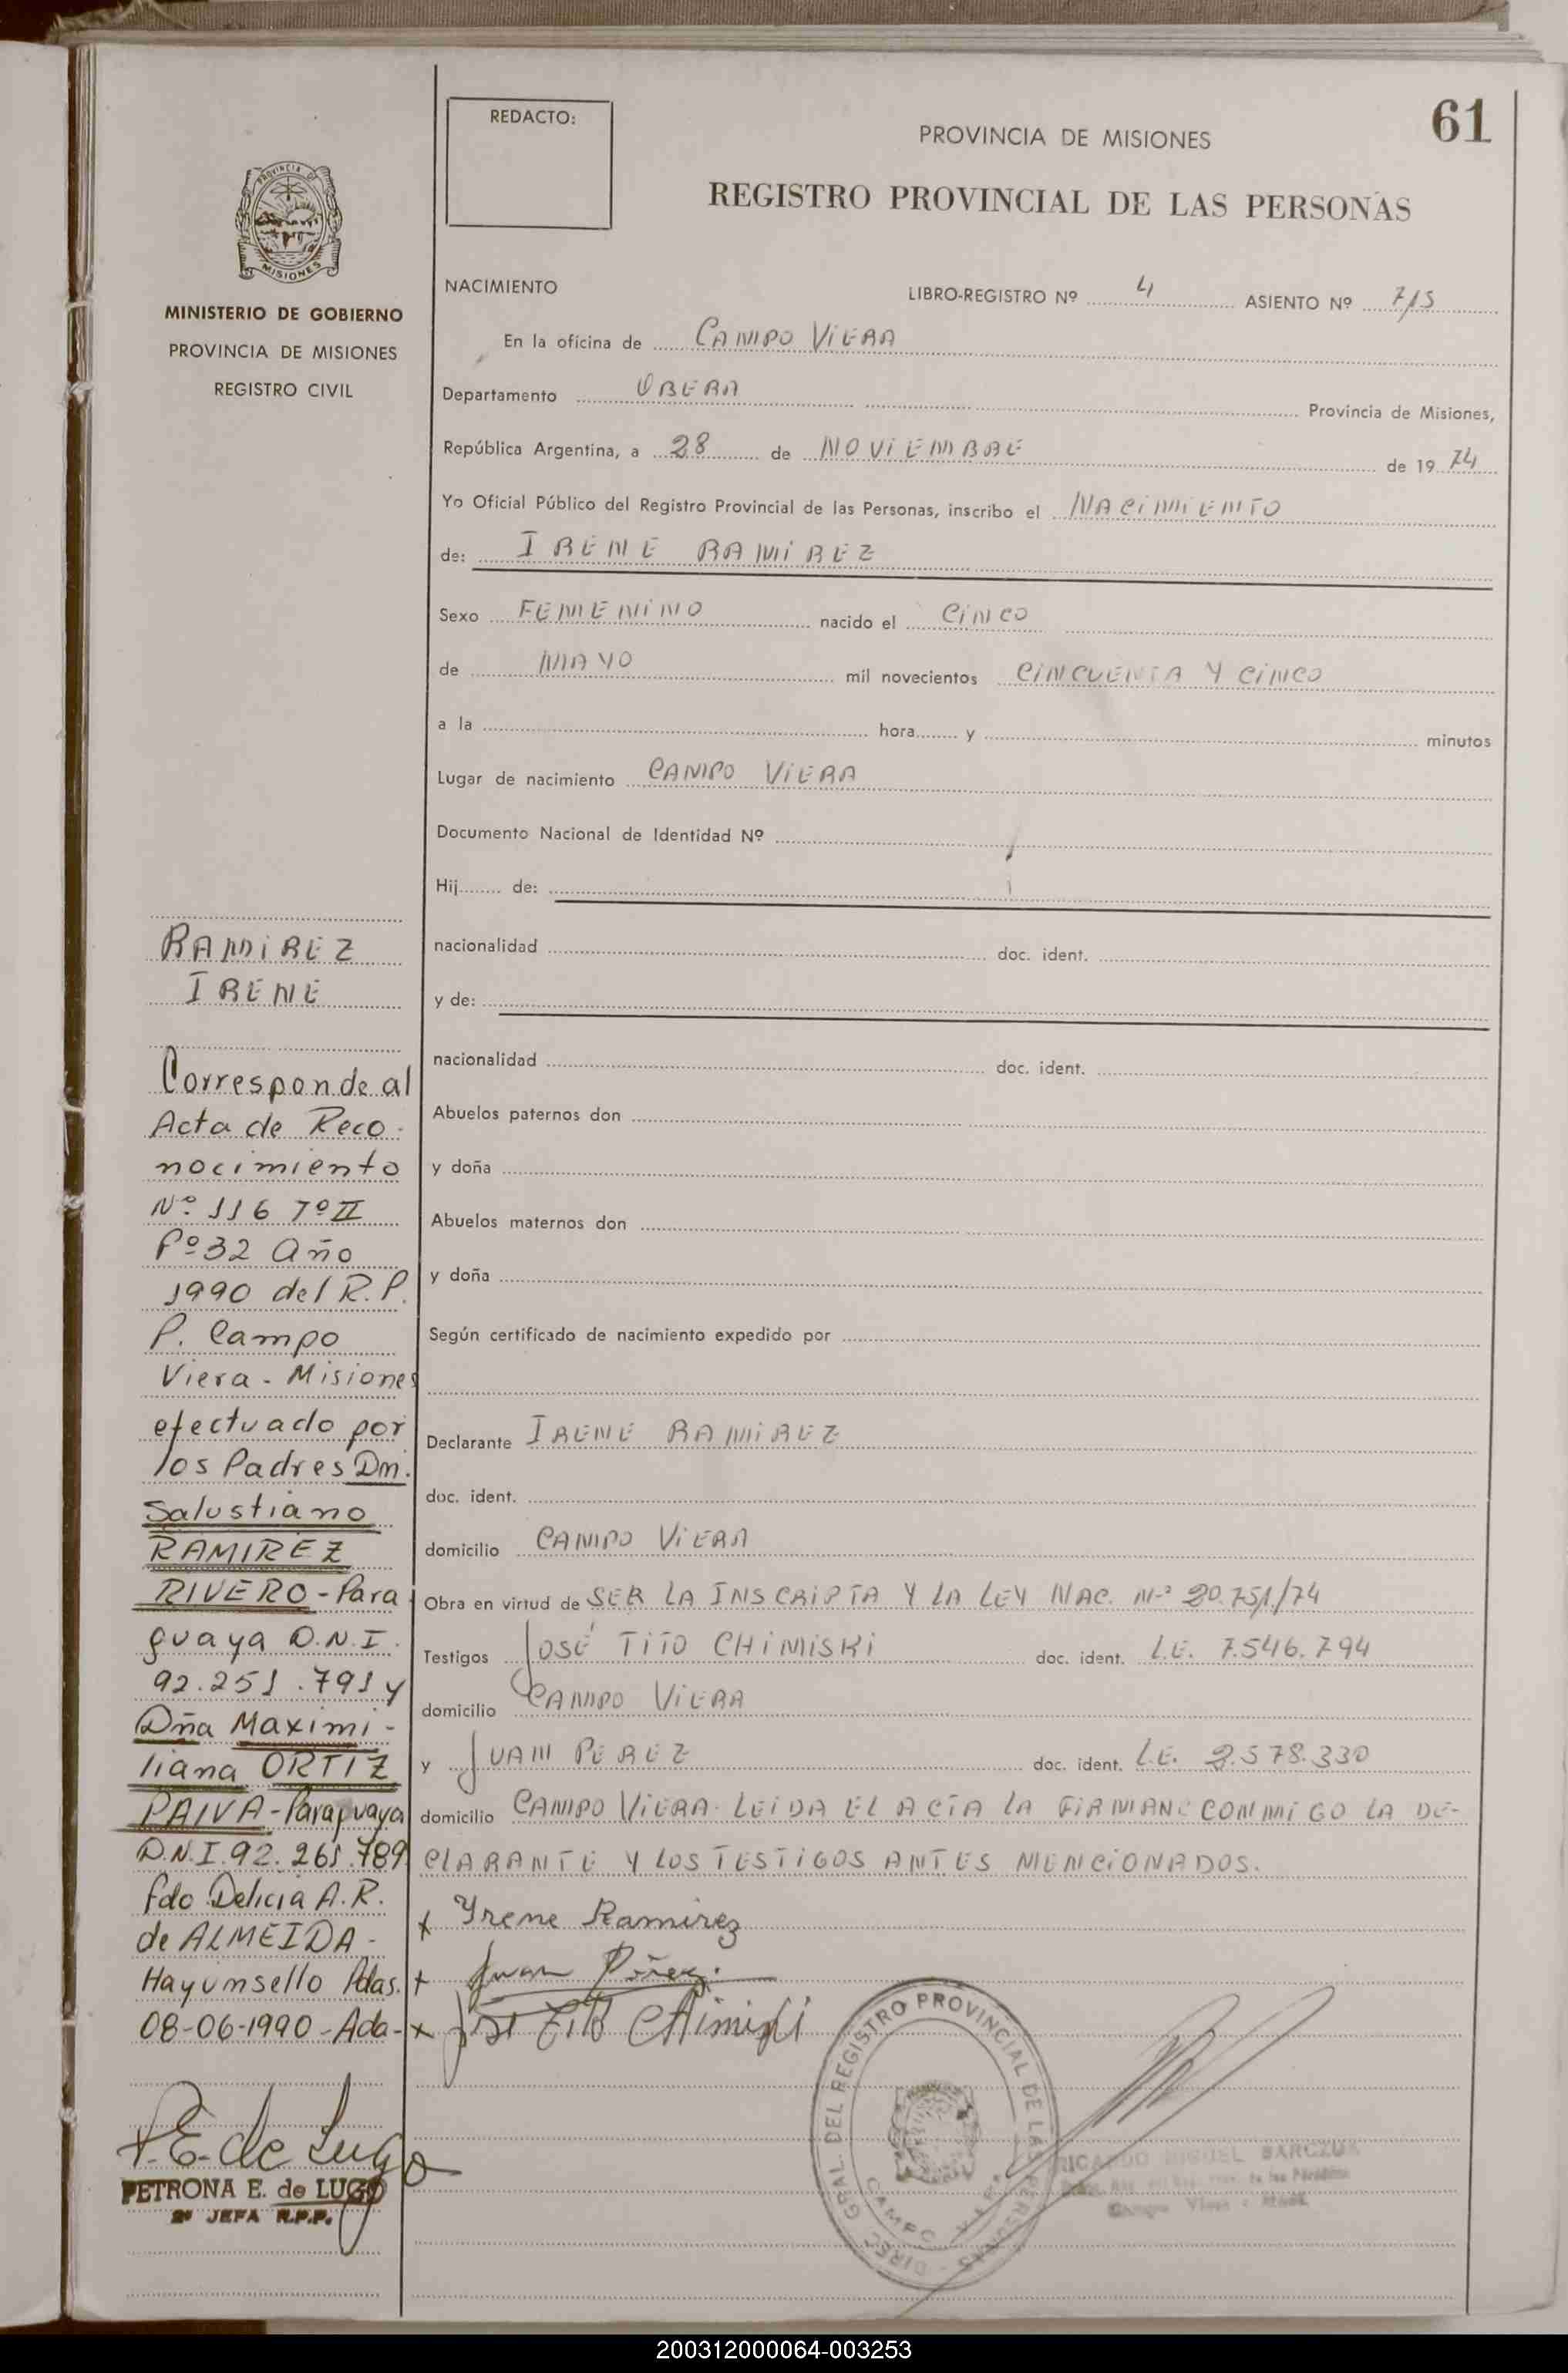 61
REDACTO:
PROVINCIA DE MISIONES
REGISTRO PROVINCIAL DE LAS PERSONAS
PROVINCIA DE
MISIONES
MINISTERIO DE GOBIERNO
PROVINCIA DE MISIONES
REGISTRO CIVIL
NACIMIENTO LIBRO-REGISTRO Nº 4 ASIENTO Nº 715
En la oficina de CAMPO VIERA
Departamento OBERA Provincia de Misiones,
República Argentina, a 28 de NOVIEMBRE de 1974
Yo Oficial Público del Registro Provincial de las Personas, inscribo el NACIMIENTO
de: IRENE RAMIREZ
Sexo FEMENINO nacido el CINCO
de MAYO mil novecientos CINCUENTA Y CINCO
a la hora y minutos
Lugar de nacimiento CAMPO VIERA
Documento Nacional de Identidad Nº
Hij de:
nacionalidad doc. ident.
y de:
nacionalidad doc. ident.
Abuelos paternos don
y doña
Abuelos maternos don
y doña
Según certificado de nacimiento expedido por
Declarante IRENE RAMIREZ
doc. ident.
domicilio CAMPO VIERA
Obra en virtud de SER LA INSCRIPTA Y LA LEY NAC. Nº 20.751/74
Testigos JOSÉ TITO CHIMISKI doc. ident. L.E. 7.546.794
domicilio CAMPO VIERA
y JUAN PEREZ doc. ident. L.E. 2.578.330
domicilio CAMPO VIERA. LEIDA EL ACTA LA FIRMAN CONMIGO LA DE-
CLARANTE Y LOS TESTIGOS ANTES MENCIONADOS.
x Yrene Ramirez
+ Juan
x José Tito Chimiski
RAMIREZ
IRENE
Corresponde al
Acta de Reco-
nocimiento
Nº 116 Tº II
Fº 32 Año
1990 del R.P.
P. Campo
Viera - Misiones
efectuado por
los Padres Dn.
Salustiano
RAMIREZ
RIVERO - Para
guaya D.N.I.
92.251.791 y
Dña Maximi-
liana ORTIZ
PAIVA - Paraguaya
D.N.I. 92.261.789
fdo Delicia A.R.
de ALMEIDA -
Hay un sello Pdas.
08-06-1990 - Ada -
P.E. de Lugo
PETRONA E. de LUGO
2ª JEFA R.P.P.
DIREC. GRAL. DEL REGISTRO PROVINCIAL DE LAS PERSONAS
CAMPO VIERA
RICARDO MIGUEL BARCZUK
Campo Viera
200312000064-003253